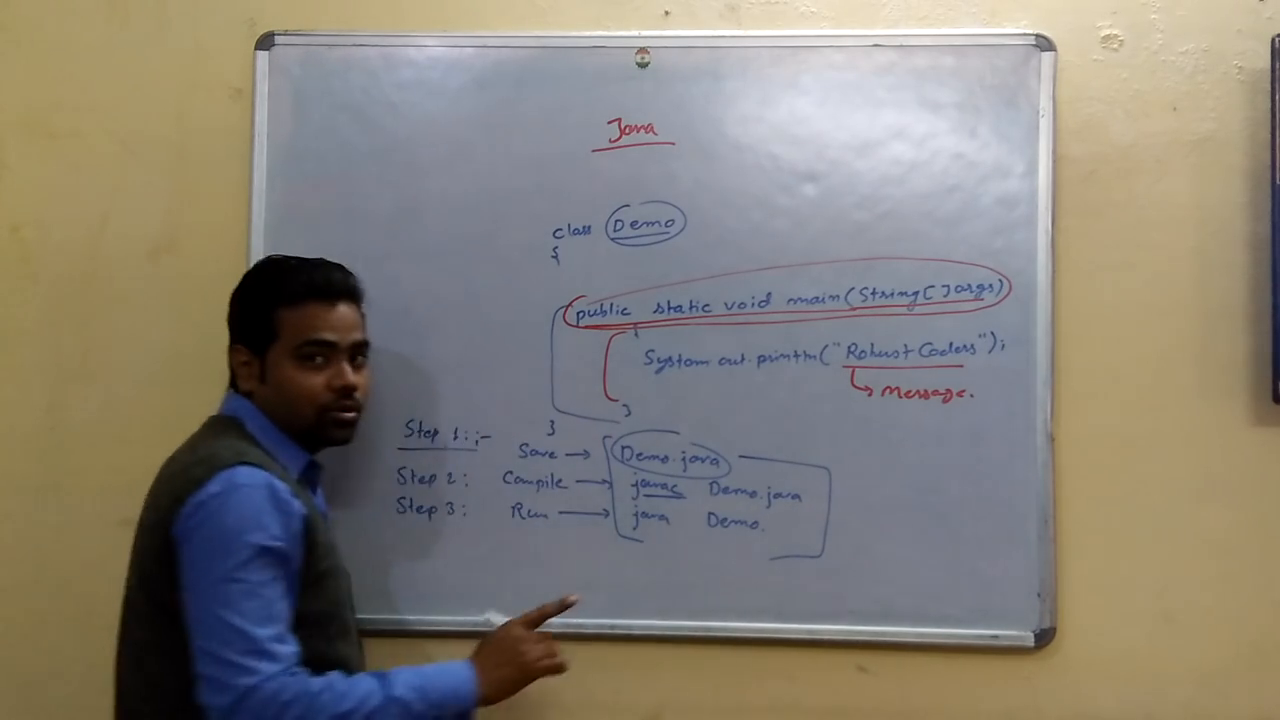 Java
class Demo
{
public static void main(String[]args)
{
System.out.println("Robust Coders");
→ Message.
}
}
Step 1:;- Save → Demo.java
Step 2: Compile → javac Demo.java
Step 3: Run → java Demo.